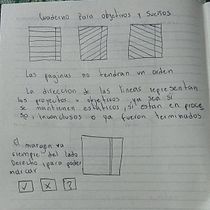 Cuaderno Para objetivos y Sueños
Las paginas no tendran un orden
La direccion de las lineas representan
los proyectos u objetivos ya sea si
se mantienen estaticos, si estan en proce
so, inconclusos o ya fueron terminados
El margen va
siempre del lado
derecho para poder
marcar
✓ X ?